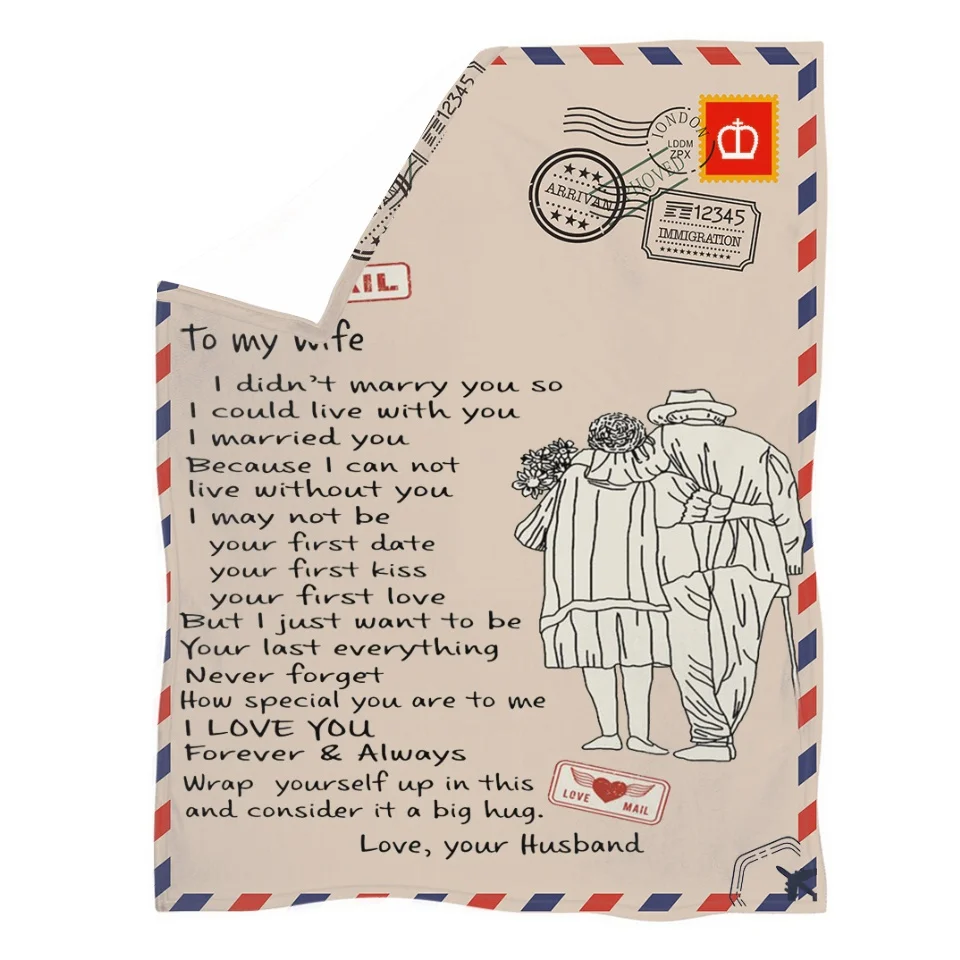 12345
LONDON
LDDM
ZPX
ARRIVAN
12345
IMMIGRATION
AIL
To my wife
I didn't marry you so
I could live with you
I married you
Because I can not
live without you
I may not be
your first date
your first kiss
your first love
But I just want to be
Your last everything
Never forget
How special you are to me
I LOVE YOU
Forever & Always
Wrap yourself up in this
and consider it a big hug.
LOVE MAIL
Love, your Husband